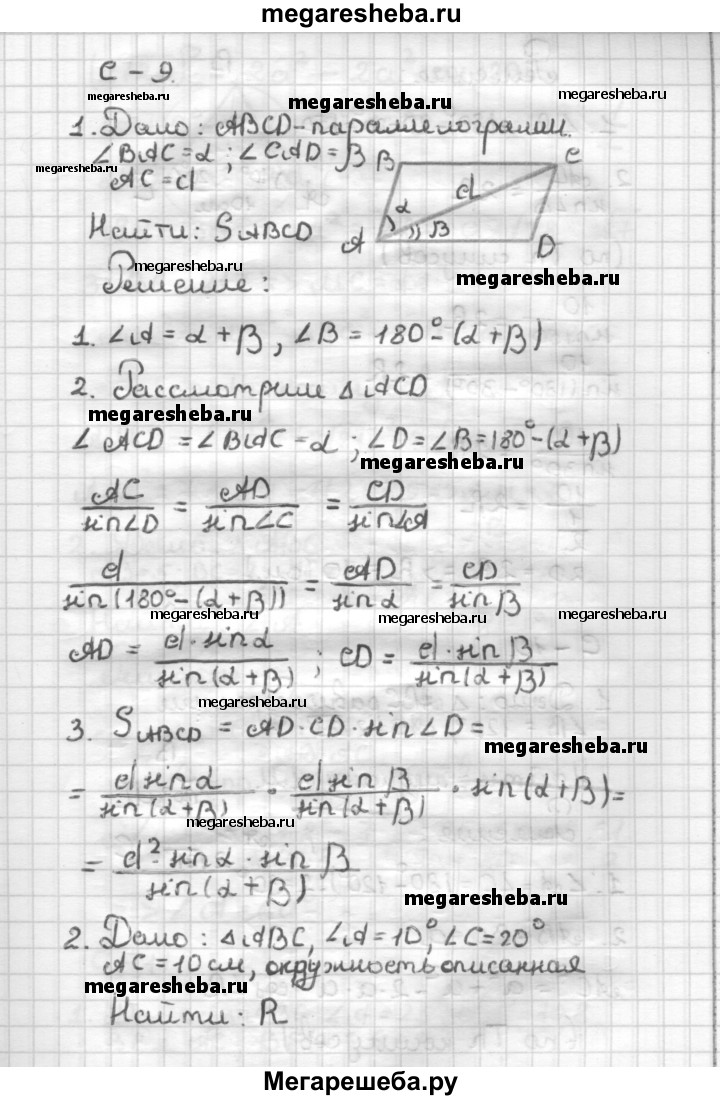 megaresheba.ru
С – 9.
megaresheba.ru
megaresheba.ru
megaresheba.ru
1. Дано: ABCD – параллелограмм.
∠BAC = α ; ∠CAD = β
AC = d
B
C
d
α
β
A
D
Найти: S_ABCD
megaresheba.ru
megaresheba.ru
Решение:
1. ∠A = α + β, ∠B = 180° – (α + β)
2. Рассмотрим ΔACD
megaresheba.ru
∠ACD = ∠BAC = α ; ∠D = ∠B = 180° – (α + β)
megaresheba.ru
AC/sin∠D = AD/sin∠C = CD/sin∠A
d/sin(180° – (α + β)) = AD/sin α = CD/sin β
megaresheba.ru
megaresheba.ru
megaresheba.ru
AD = d · sin α/sin(α + β) ; CD = d · sin β/sin(α + β)
megaresheba.ru
3. S_ABCD = AD · CD · sin∠D =
megaresheba.ru
= d sin α/sin(α + β) · d sin β/sin(α + β) · sin(α + β) =
megaresheba.ru
= d² · sin α · sin β/sin(α + β)
megaresheba.ru
2. Дано: ΔABC, ∠A = 10°, ∠C = 20°
AC = 10 см, окружность описанная
megaresheba.ru
Найти: R
Мегарешеба.ру